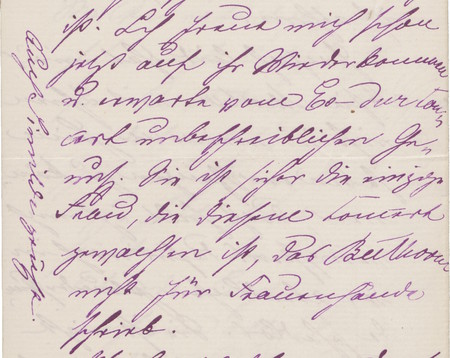 ist. Ich freue mich schon
jetzt auf ihr Wiederkommen
u. erwarte vom Es-dur Con-
cert unbeschreiblichen Ge-
nuß. Sie ist sicher die einzige
Frau, die diesem Concert
gewachsen ist, das Beethoven
nicht für Frauenhände
schrieb.